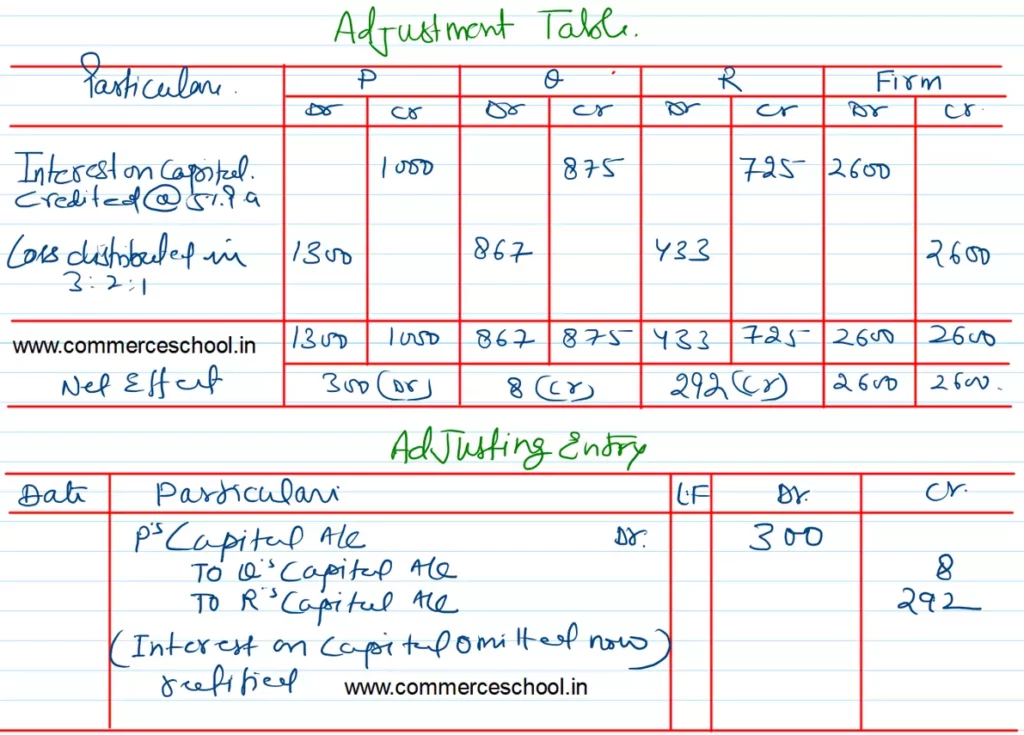 Adjustment Table.
Particulars. P Q R Firm
Dr Cr Dr Cr Dr Cr Dr Cr.
Interest on Capital. 1000 875 725 2600
Credited @ 5% P a
Loss distributed in 1300 867 433 2600
3:2:1
www.commerceschool.in 1300 1000 867 875 433 725 2600 2600
Net Effect 300 (Dr) 8 (Cr) 292 (Cr) 2600 2600.
Adjusting Entry
Date Particulars L.F Dr. Cr.
P's Capital A/c Dr. 300
To Q's Capital A/c 8
To R's Capital A/c 292
(Interest on Capital omitted now)
rectified www.commerceschool.in